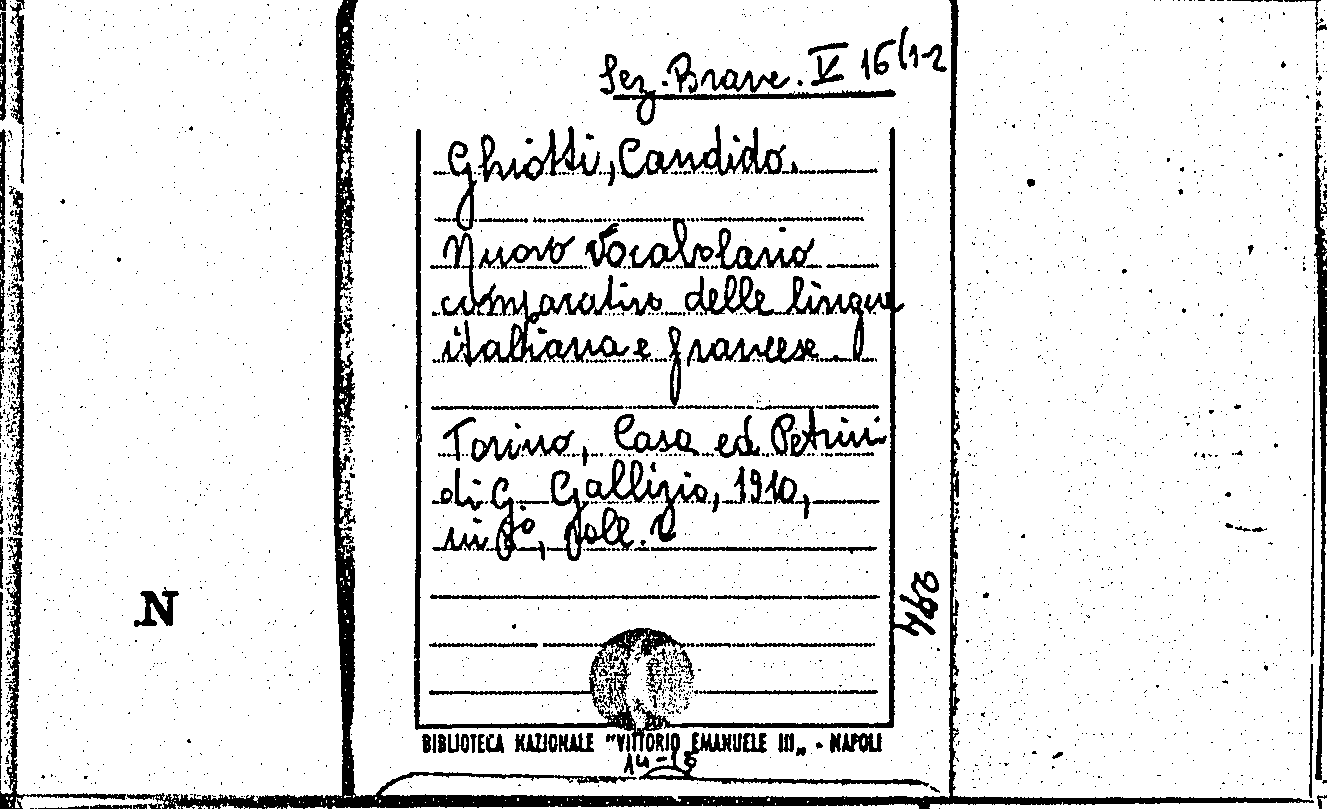 Sez. Branc. V 16(1-2
Ghiotti, Candido.
Nuovo Vocabolario
comparativo delle lingue
italiana e francese.
Torino, Casa ed Petrini
di G. Gallizio, 1910,
in 8º, voll. 2
N
BIBLIOTECA NAZIONALE "VITTORIO EMANUELE III„ - NAPOLI